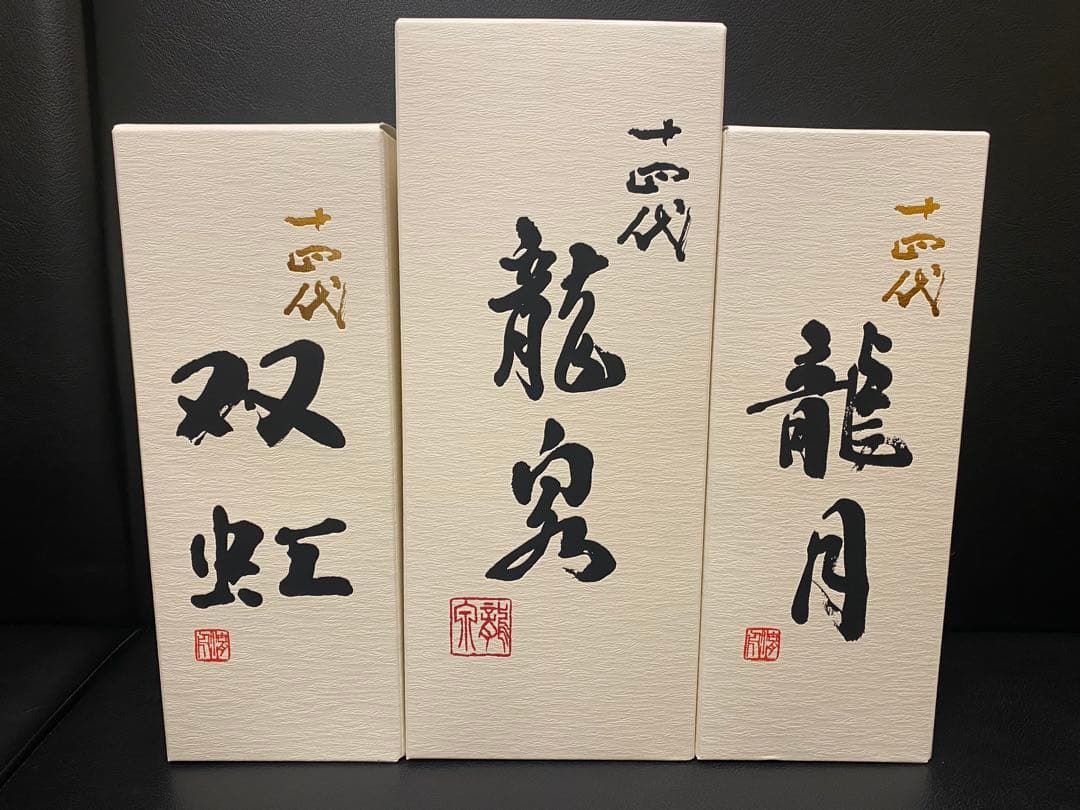 十四代
双虹
十四代
龍泉
十四代
龍月